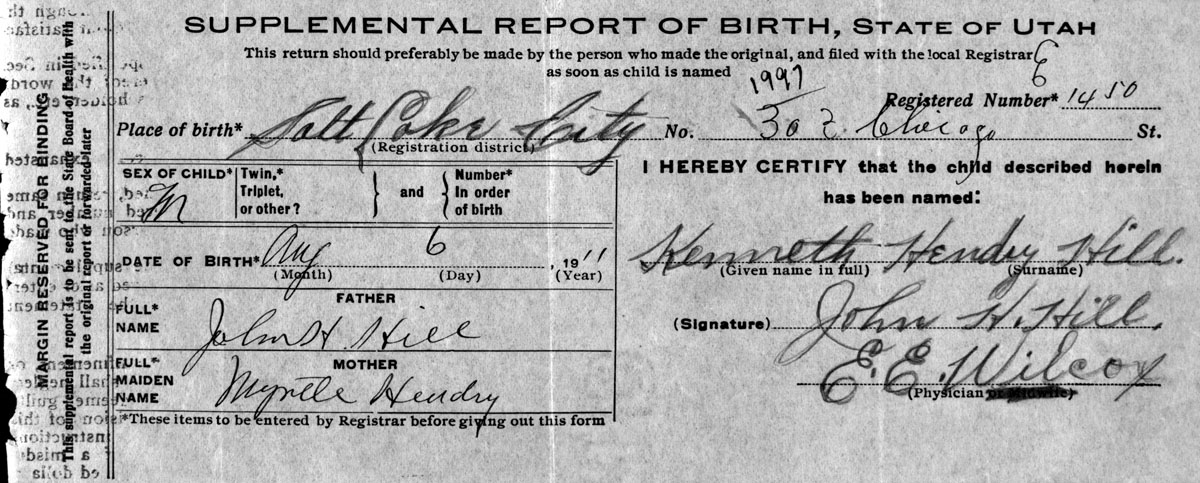 SUPPLEMENTAL REPORT OF BIRTH, STATE OF UTAH
This return should preferably be made by the person who made the original, and filed with the local Registrar
as soon as child is named
1997
Registered Number* 1450
Place of birth* Salt Lake City No. 302 Chicago St.
(Registration district)
SEX OF CHILD* M
Twin,*
Triplet,
or other?
and
Number*
In order
of birth
DATE OF BIRTH* Aug 6, 1911
(Month) (Day) (Year)
FATHER
FULL* NAME John H Hill
MOTHER
FULL* MAIDEN NAME Myrtle Hendry
*These items to be entered by Registrar before giving out this form
I HEREBY CERTIFY that the child described herein
has been named:
Kenneth Hendry Hill.
(Given name in full) (Surname)
(Signature) John H. Hill.
E. E. Wilcox
(Physician or Midwife)
MARGIN RESERVED FOR BINDING
This supplemental report is to be sent to the State Board of Health with
the original report or forwarded later